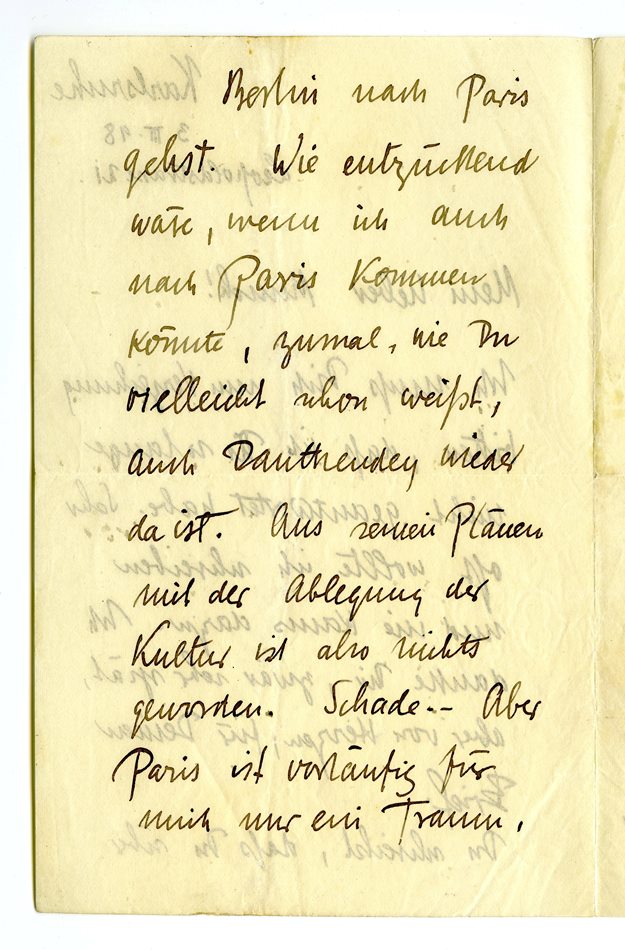 Berlin nach Paris
gehst. Wie entzückend
wäre, wenn ich auch
nach Paris kommen
könnte, zumal, wie Du
vielleicht schon weißt,
auch Dauthendey wieder
da ist. Aus seinen Plänen
mit der Ablegung der
Kultur ist also nichts
geworden. Schade -- Aber
Paris ist vorläufig für
mich nur ein Traum.